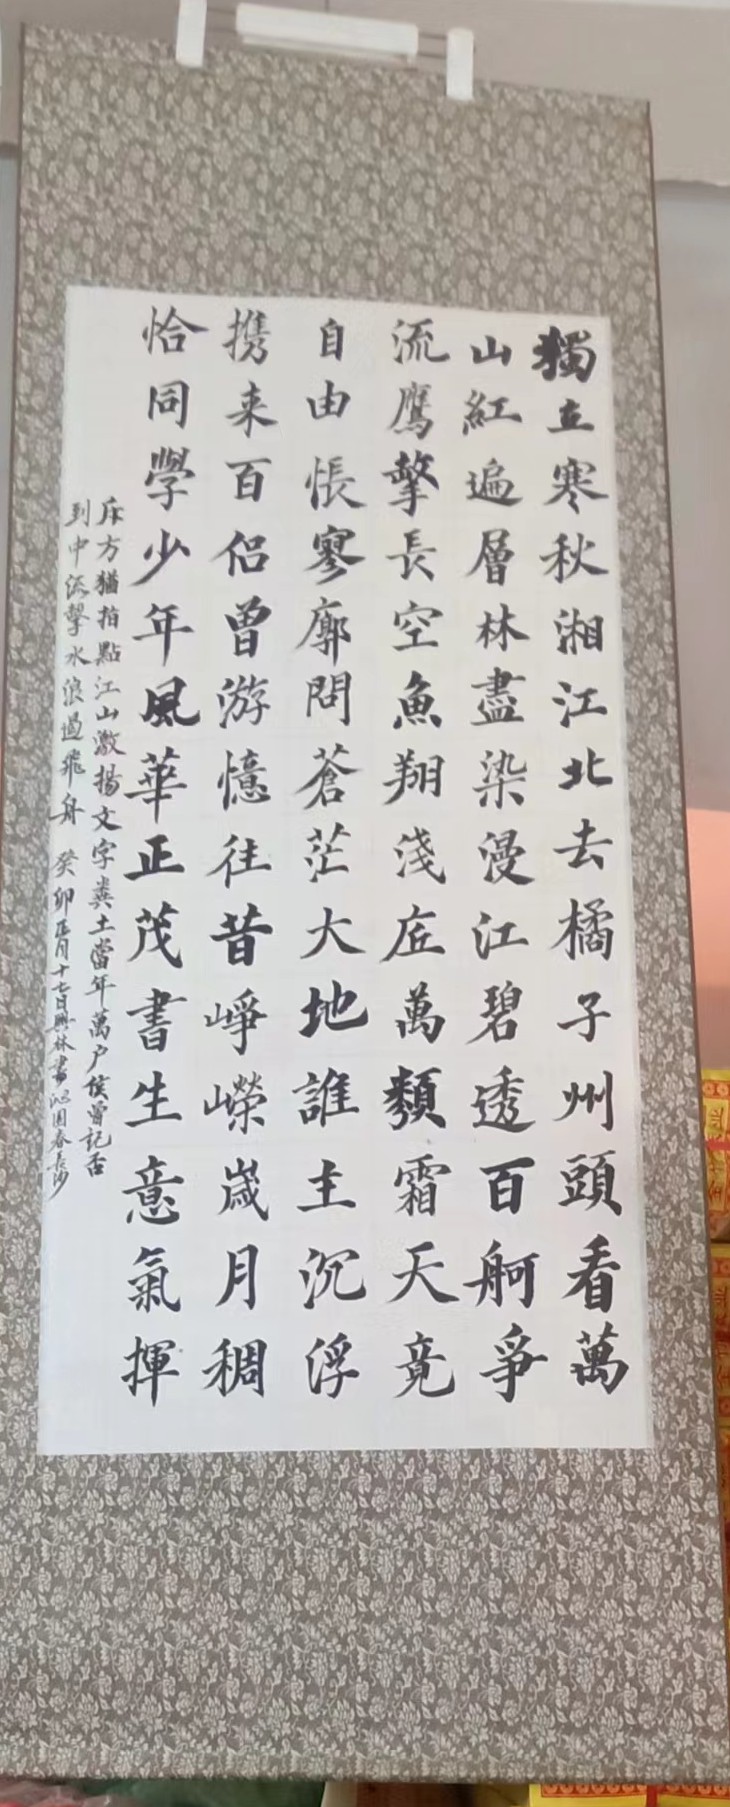 獨立寒秋湘江北去橘子州頭看萬
山紅遍層林盡染漫江碧透百舸爭
流鷹擊長空魚翔淺底萬類霜天竟
自由悵寥廓問蒼茫大地誰主沉浮
携来百侣曾游憶往昔崢嶸崴月稠
恰同學少年風華正茂書生意氣揮
斥方猶拍點江山激揚文字粪土當年萬户侯曾記否
到中流擊水浪過飛舟 癸卯正月十七日興林書沁园春長沙